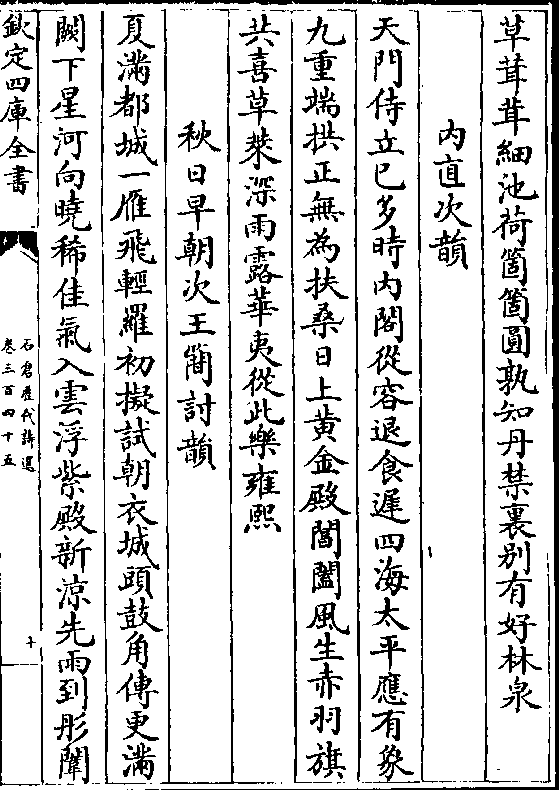 草茸茸細池荷箇箇圓孰知丹禁裏别有好林泉
内直次韻
天門侍立已多時内閣從容退食遲四海太平應有象
九重端拱正無為扶桑日上黄金殿閶闔風生赤羽旗
共喜草萊深雨露華夷從此樂雍熙
秋日早朝次王簡討韻
夏滿都城一雁飛輕羅初擬試朝衣城頭鼓角傳更滿
闕下星河向曉稀佳氣入雲浮紫殿新涼先雨到彤闈
欽定四庫全書
石倉歴代詩選
卷三百四十五
十